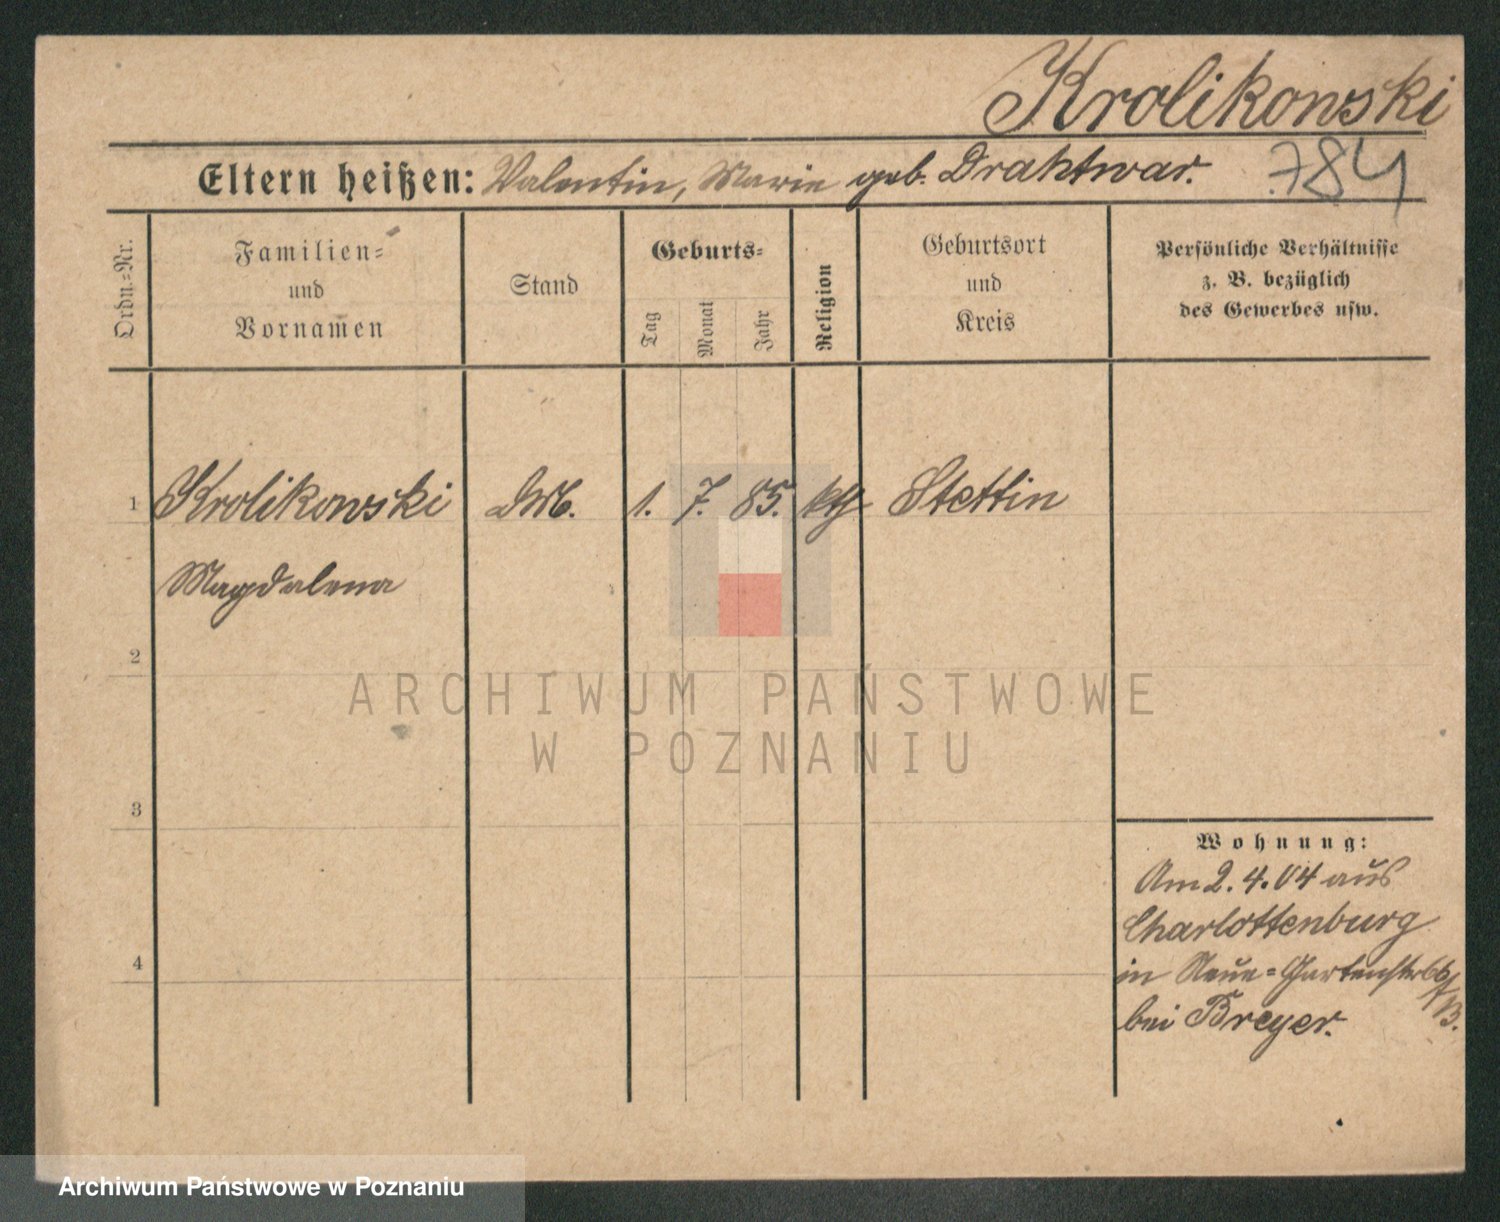 Krolikowski
Eltern heißen: Valentin, Marie geb. Drahtwar.
784
Ordn.-Nr.
Familien-
und
Vornamen
Stand
Geburts-
Tag
Monat
Jahr
Religion
Geburtsort
und
Kreis
Persönliche Verhältnisse
z. B. bezüglich
des Gewerbes usw.
1 Krolikowski 1. 7. 85. kth Stettin
Magdalena
2
ARCHIWUM PAŃSTWOWE
W POZNANIU
3
Wohnung:
Am 2. 4. 04 aus
Charlottenburg
4
in Neue-Gartenstr 66
bei Breyer.
Archiwum Państwowe w Poznaniu